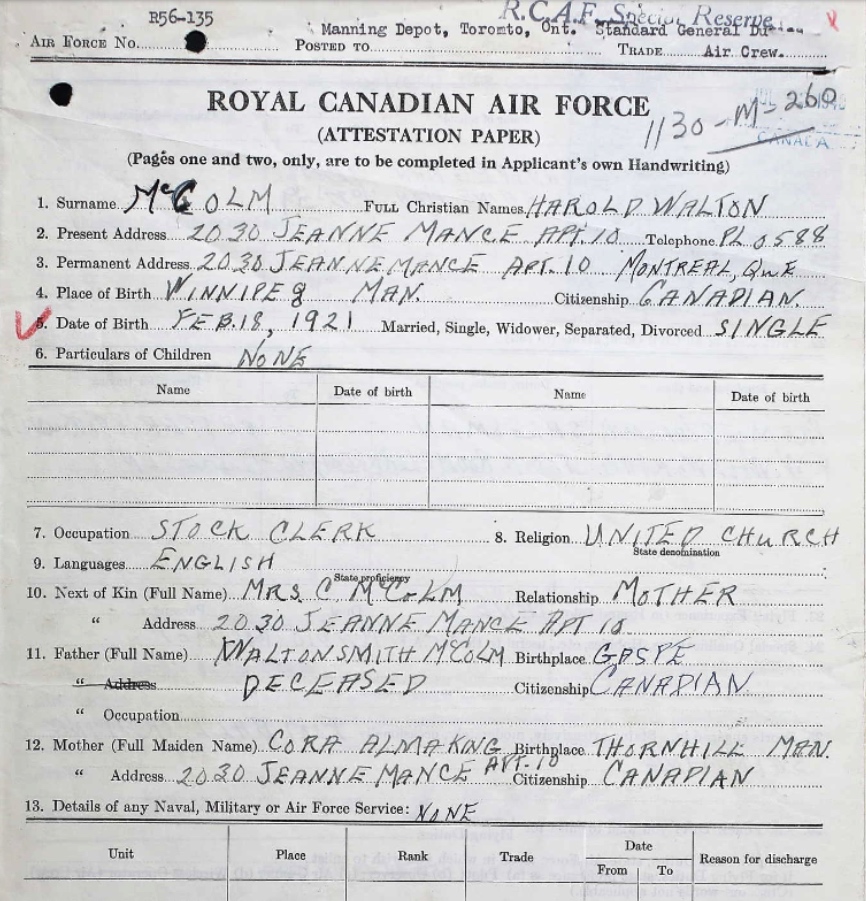 R56-135
R.C.A.F. Special Reserve
Manning Depot, Toronto, Ont. Standard General
AIR FORCE No. POSTED TO TRADE Air Crew.
ROYAL CANADIAN AIR FORCE
1130-M-260
(ATTESTATION PAPER)
CANADA
(Pages one and two, only, are to be completed in Applicant's own Handwriting)
1. Surname McCOLM FULL Christian Names HAROLD WALTON
2. Present Address 2030 JEANNE MANCE APT. 10 Telephone PL 0588
3. Permanent Address 2030 JEANNE MANCE APT. 10 MONTREAL, QUE
4. Place of Birth WINNIPEg MAN. Citizenship CANADIAN.
5. Date of Birth FEB. 18, 1921 Married, Single, Widower, Separated, Divorced SINGLE
6. Particulars of Children NONE
Name Date of birth Name Date of birth
7. Occupation STOCK CLERK 8. Religion UNITED CHURCH
State denomination
9. Languages ENGLISH
State proficiency
10. Next of Kin (Full Name) MRS. C McCOLM Relationship MOTHER
" Address 2030 JEANNE MANCE APT 10
11. Father (Full Name) WALTON SMITH McCOLM Birthplace GASPE
" Address DECEASED Citizenship CANADIAN
" Occupation
12. Mother (Full Maiden Name) CORA ALMA KING Birthplace THORNHILL MAN.
" Address 2030 JEANNE MANCE APT. 10 Citizenship CANADIAN
13. Details of any Naval, Military or Air Force Service: NONE
Unit Place Rank Trade Date Reason for discharge
From To